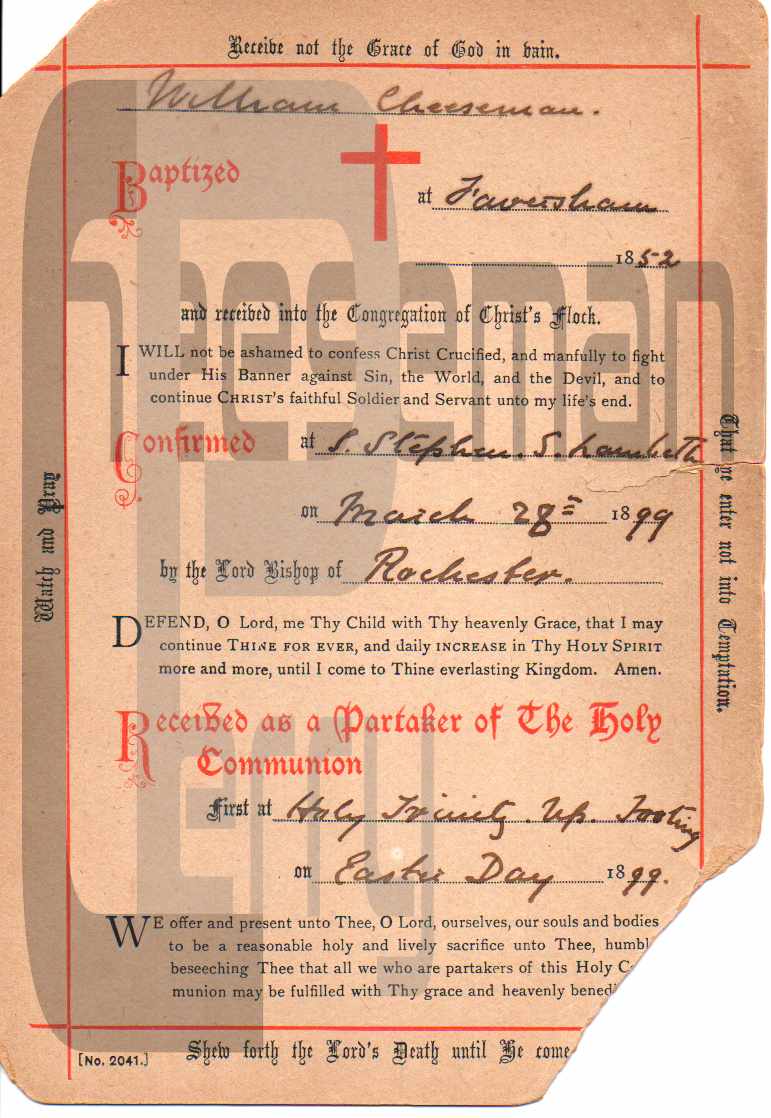 Receive not the Grace of God in vain.
William Cheeseman.
Baptized
at Faversham
1852
and received into the Congregation of Christ's Flock.
I WILL not be ashamed to confess Christ Crucified, and manfully to fight
under His Banner against Sin, the World, and the Devil, and to
continue CHRIST'S faithful Soldier and Servant unto my life's end.
Confirmed at S. Stephen. S. Lambeth
on March 28th 1899
by the Lord Bishop of Rochester.
DEFEND, O Lord, me Thy Child with Thy heavenly Grace, that I may
continue THINE FOR EVER, and daily INCREASE in Thy HOLY SPIRIT
more and more, until I come to Thine everlasting Kingdom. Amen.
Received as a Partaker of The Holy
Communion
First at Holy Trinity. Up. Tooting
on Easter Day 1899.
WE offer and present unto Thee, O Lord, ourselves, our souls and bodies
to be a reasonable holy and lively sacrifice unto Thee, humbl
beseeching Thee that all we who are partakers of this Holy C
munion may be fulfilled with Thy grace and heavenly bened
[No. 2041.]
Shew forth the Lord's Death until He come
Watch and Pray
That ye enter not into Temptation.
Cheeseman
Perry